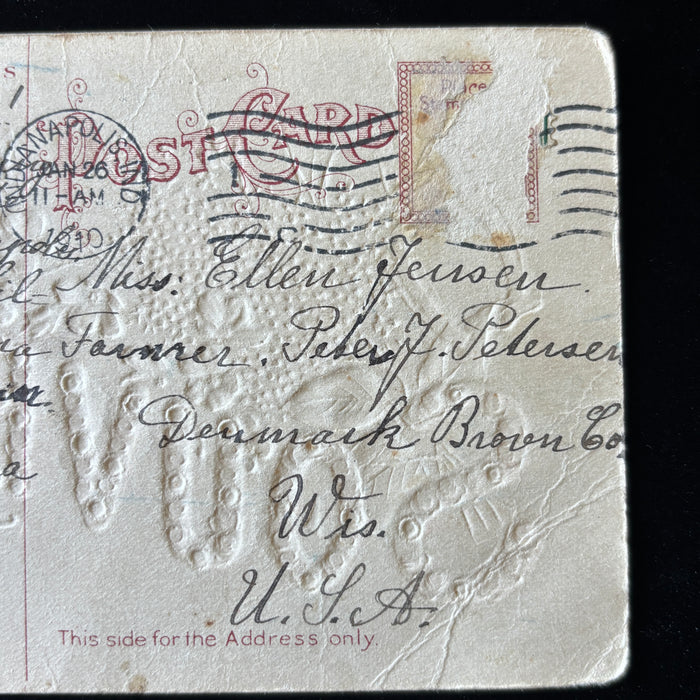 POST CARD
Place
Stamp
JAN 26
11-AM
1910
Miss. Ellen Jensen.
Farmer. Peter J. Petersen
Denmark Brown Co,
Wis.
U. S. A.
This side for the Address only.